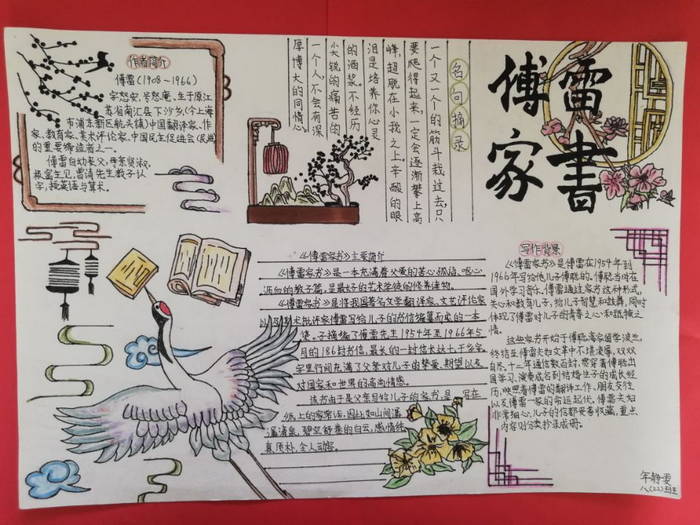 作者简介
傅雷(1908-1966)
字怒安,号怒庵,生于原江
苏省南汇县下沙乡(今上海
市浦东新区航头镇)中国翻译家、作
家、教育家、美术评论家,中国民主促进会(民进)
的重要缔造者之一。
傅雷自幼丧父,
字,授英语与算术。
名句摘录
一个又一个的筋斗栽过去,只
要爬得起来,一定会逐渐攀上高
峰,超脱在小我之上。辛酸的眼
泪是培养你心灵
的酒浆。不经历
尖锐的痛苦的
一个人不会有深
厚博大的同情心。
傅雷
家书
《傅雷家书》主要简介
《傅雷家书》是一本充满着父爱的苦心孤诣、呕心
沥血的教子篇,是最好的艺术学徒的修养读物。
《傅雷家书》是将我国著名文学翻译家、文艺评论家
美术批评家傅雷写给儿子的书信编纂而来的一本
集,子摘编了傅雷先生1954年至1966年5
月的186封书信,最长的一封信长达七千多字。
字里行间充满了父亲对儿子的挚爱、期望以及
对国家和世界的高尚情感。
该书由于是父母写给儿子的家书,是写在
纸上的家常话,因此如山间潺
潺清泉,碧空舒卷的白云,感情纯
真、质朴,令人动容。
写作背景
《傅雷家书》是傅雷在1954年到
1966年写给他儿子傅聪的。傅聪当时在
国外学习音乐。傅雷通过家书这种形式,
关心和教育儿子,给儿子智慧和鼓舞,同时
体现了傅雷对儿子的
情。
这些家书开始于傅聪离家留学波兰,
终结至傅雷夫妇文革中不堪凌辱,双双
自尽,十二年通信数百封,贯穿着傅聪出
国学习、演奏成名到结婚生子的成长经
历,映照着傅雷的翻译工作、朋友交往
以及傅雷一家的命运起伏。傅雷夫妇
非常细心,儿子的信都妥善收藏,重点
内容则分类抄录成册。
年静雯
八(22)班